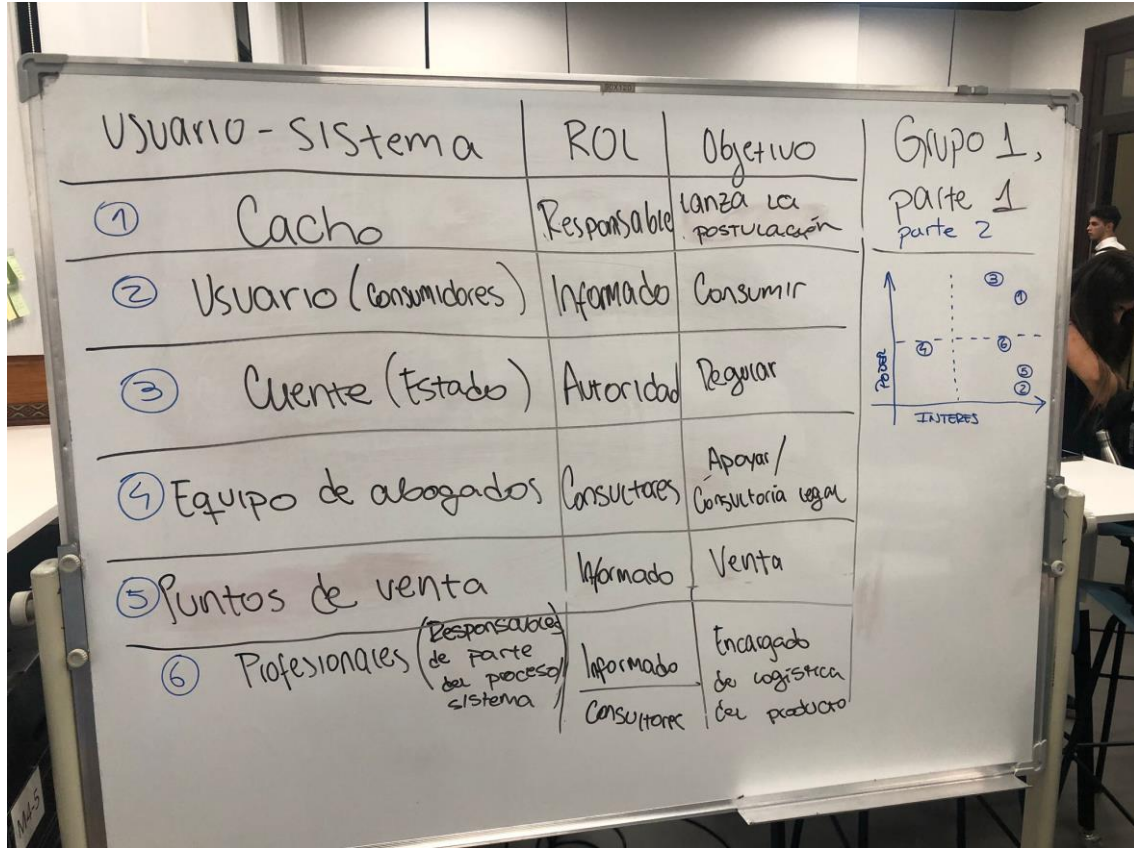 Usuario - Sistema
ROL
Objetivo
Grupo 1,
parte 1
parte 2
① Cacho
Responsable
Lanza la
postulación
② Usuario (Consumidores)
Informado
Consumir
③ Cliente (Estado)
Autoridad
Regular
④ Equipo de abogados
Consultores
Apoyar/
Consultoría legal
⑤ Puntos de venta
Informado
Venta
⑥ Profesionales (Responsables
de parte
del proceso/
sistema)
Informado
Consultores
Encargado
de logística
del producto
PODER
③
①
④
⑥
⑤
②
INTERES
M4-5